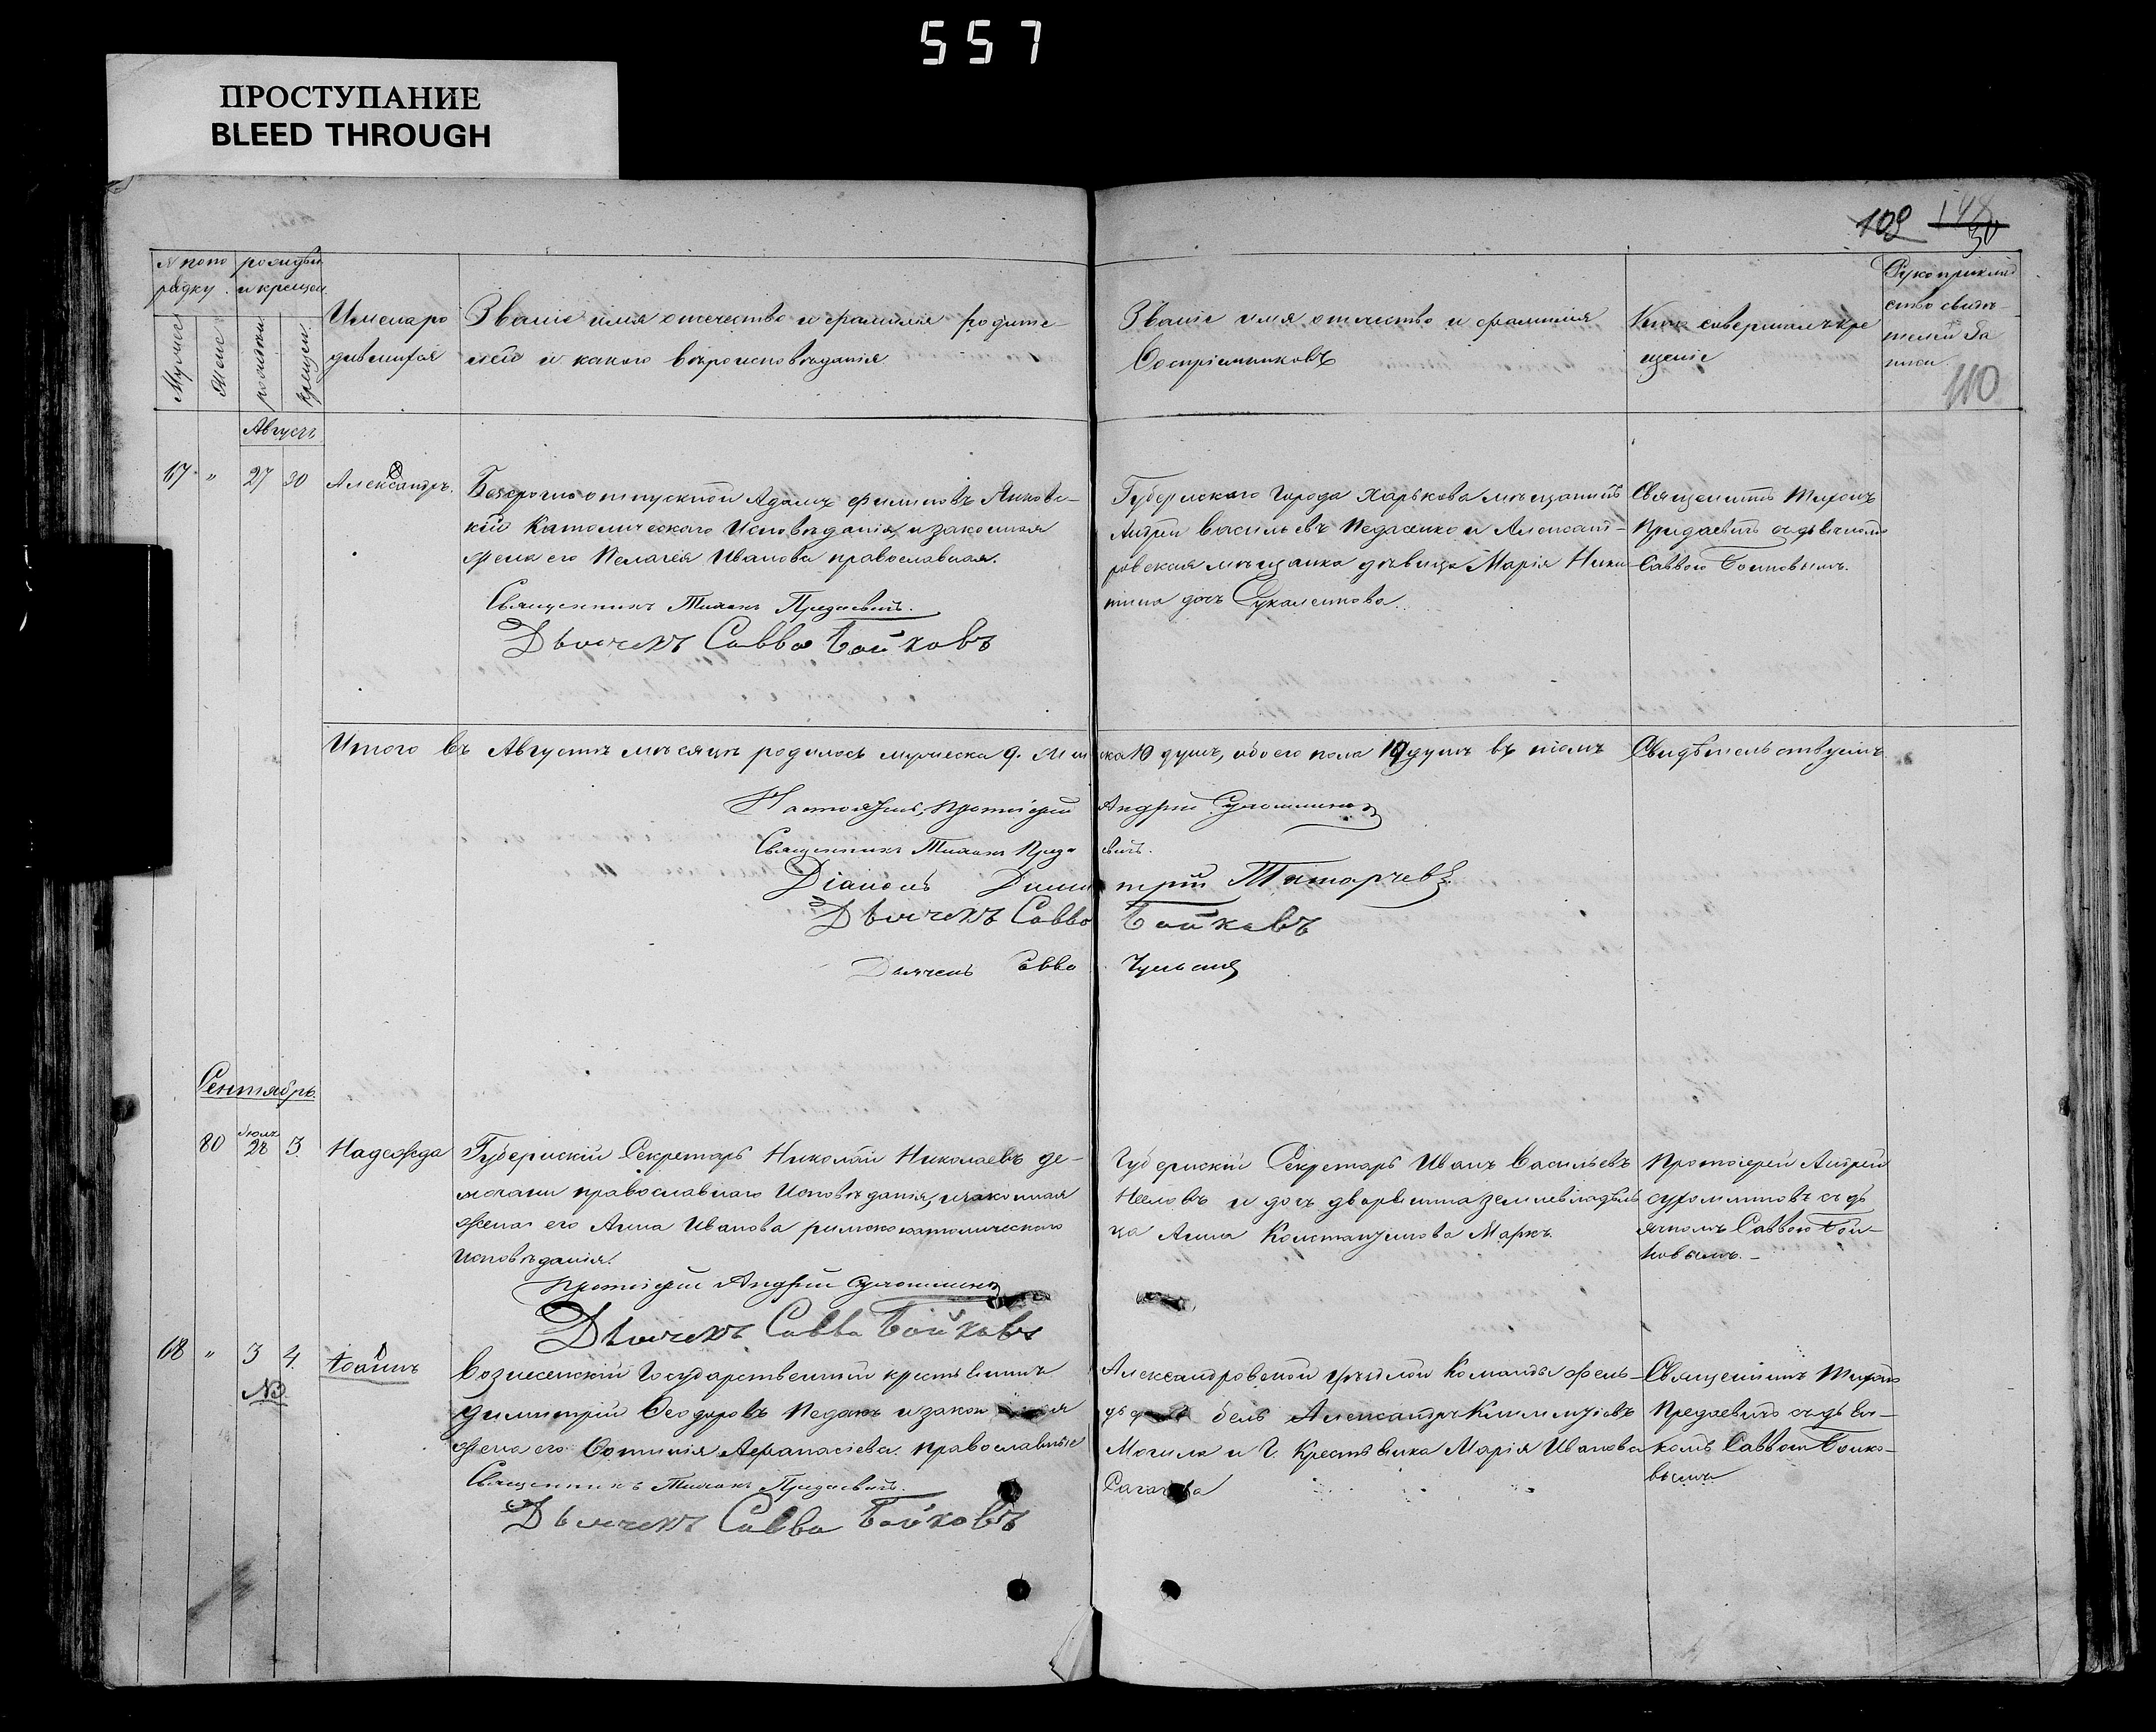 557
ПРОСТУПАНИЕ
BLEED THROUGH
109 148
30
110
№ по по рядку
рожден. и крещен.
Мужеск
Женс
рожден.
крещен.
Имена родившихся
Званіе имя отечество и фамилія родите-
лей и какого вѣроисповѣданія
Званіе имя отчество и фамилія
Воспріемниковъ
Кто совершалъ кре
щеніе
Рукоприклад
ство свидѣ-
телей За
писи
Августъ
67 " 27 30 Александръ.
Безсрочно отпускной Адамъ Филиповъ Янковс-
кій Католическаго Исповѣданія, и законная
жена его Пелагея Иванова православная.
Священникъ Тихонъ Придаевичъ.
Дьячекъ Савва Бойковъ
Губернскаго Города Харькова мѣщанинъ
Андрей Васильевъ Педаенко и Александ-
ровская мѣщанка дѣвица Марія Ники-
тина дочь Сукаленкова.
Священникъ Тихонъ
Придаевичъ съ дьячкомъ
Саввою Бойковымъ.
Итого въ Августѣ мѣсяцѣ родилось мужеска 9. женска 10 душъ, обоего пола 19 душъ въ томъ Свидѣтельствуемъ
Настоятель, Протоіерей Андрей
Священникъ Тихонъ Придаевичъ.
Діаконъ Димитрій
Дьячекъ Савва Бойковъ
Дьячекъ Савва
Сентябрь.
80 Іюля 28 3. Надежда
Губернскій Секретарь Николай Николаевъ де-
православнаго Исповѣданія, и законная
жена его Анна Иванова римско католическаго
Исповѣданія.
Протоіерей Андрей
Дьячекъ Савва Бойковъ
Губернскій Секретарь Иванъ Васильевъ
Нееловъ и дочь дворянина землевладѣль
ца Анна Константинова Маркъ.
Протоіерей Андрей
съ дь
ячкомъ Саввою Бой-
ковымъ. -
68 " 3 4. Іоаннъ
№
Вознесенскій Государственный крестьянинъ
Димитрій Ѳеодоровъ Педаюкъ и законная
жена его Афанасіева. православные
Священникъ Тихонъ Придаевичъ.
Дьячекъ Савва Бойковъ
Александровской уѣздной Команды фель-
дфебель Александръ Климентіевъ
Могила и Г. Крестьянка Марія Иванова
Священникъ Тихонъ
Придаевичъ съ дьяч-
комъ Саввою Бойко-
вымъ